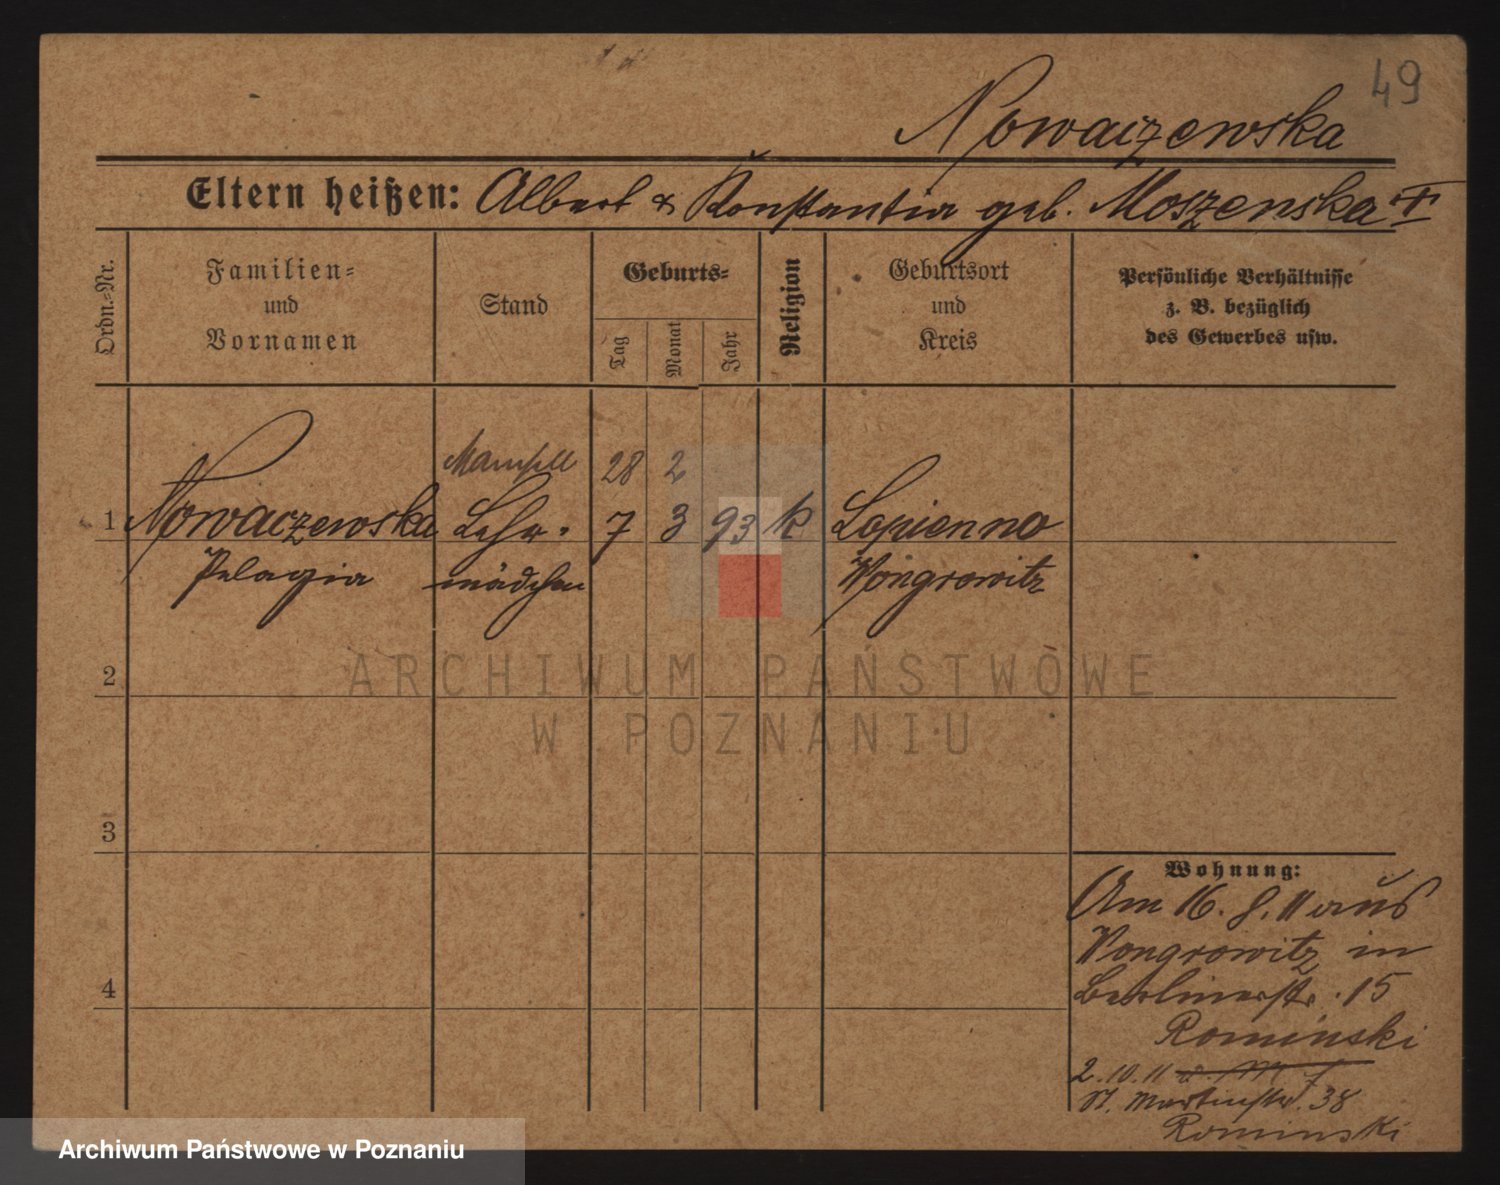 49
Nowaczewska
Eltern heißen: Albert & Konstantia geb. Moszenska †
Ordn.=Nr.
Familien=
und
Vornamen
Stand
Geburts=
Tag
Monat
Jahr
Religion
Geburtsort
und
Kreis
Persönliche Verhältnisse
z. B. bezüglich
des Gewerbes usw.
Mamsell 28 2
1 Nowaczewska Lehr- 7 3 93 k Lopienno
Pelagia mädchen Wongrowitz
2
ARCHIWUM PAŃSTWOWE
W POZNANIU
3
4
Wohnung:
Am 16. 8. 11 aus
Wongrowitz in
Berlinerstr. 15
Rominski
2.10.11
St. Martinstr. 38
Rominski
Archiwum Państwowe w Poznaniu